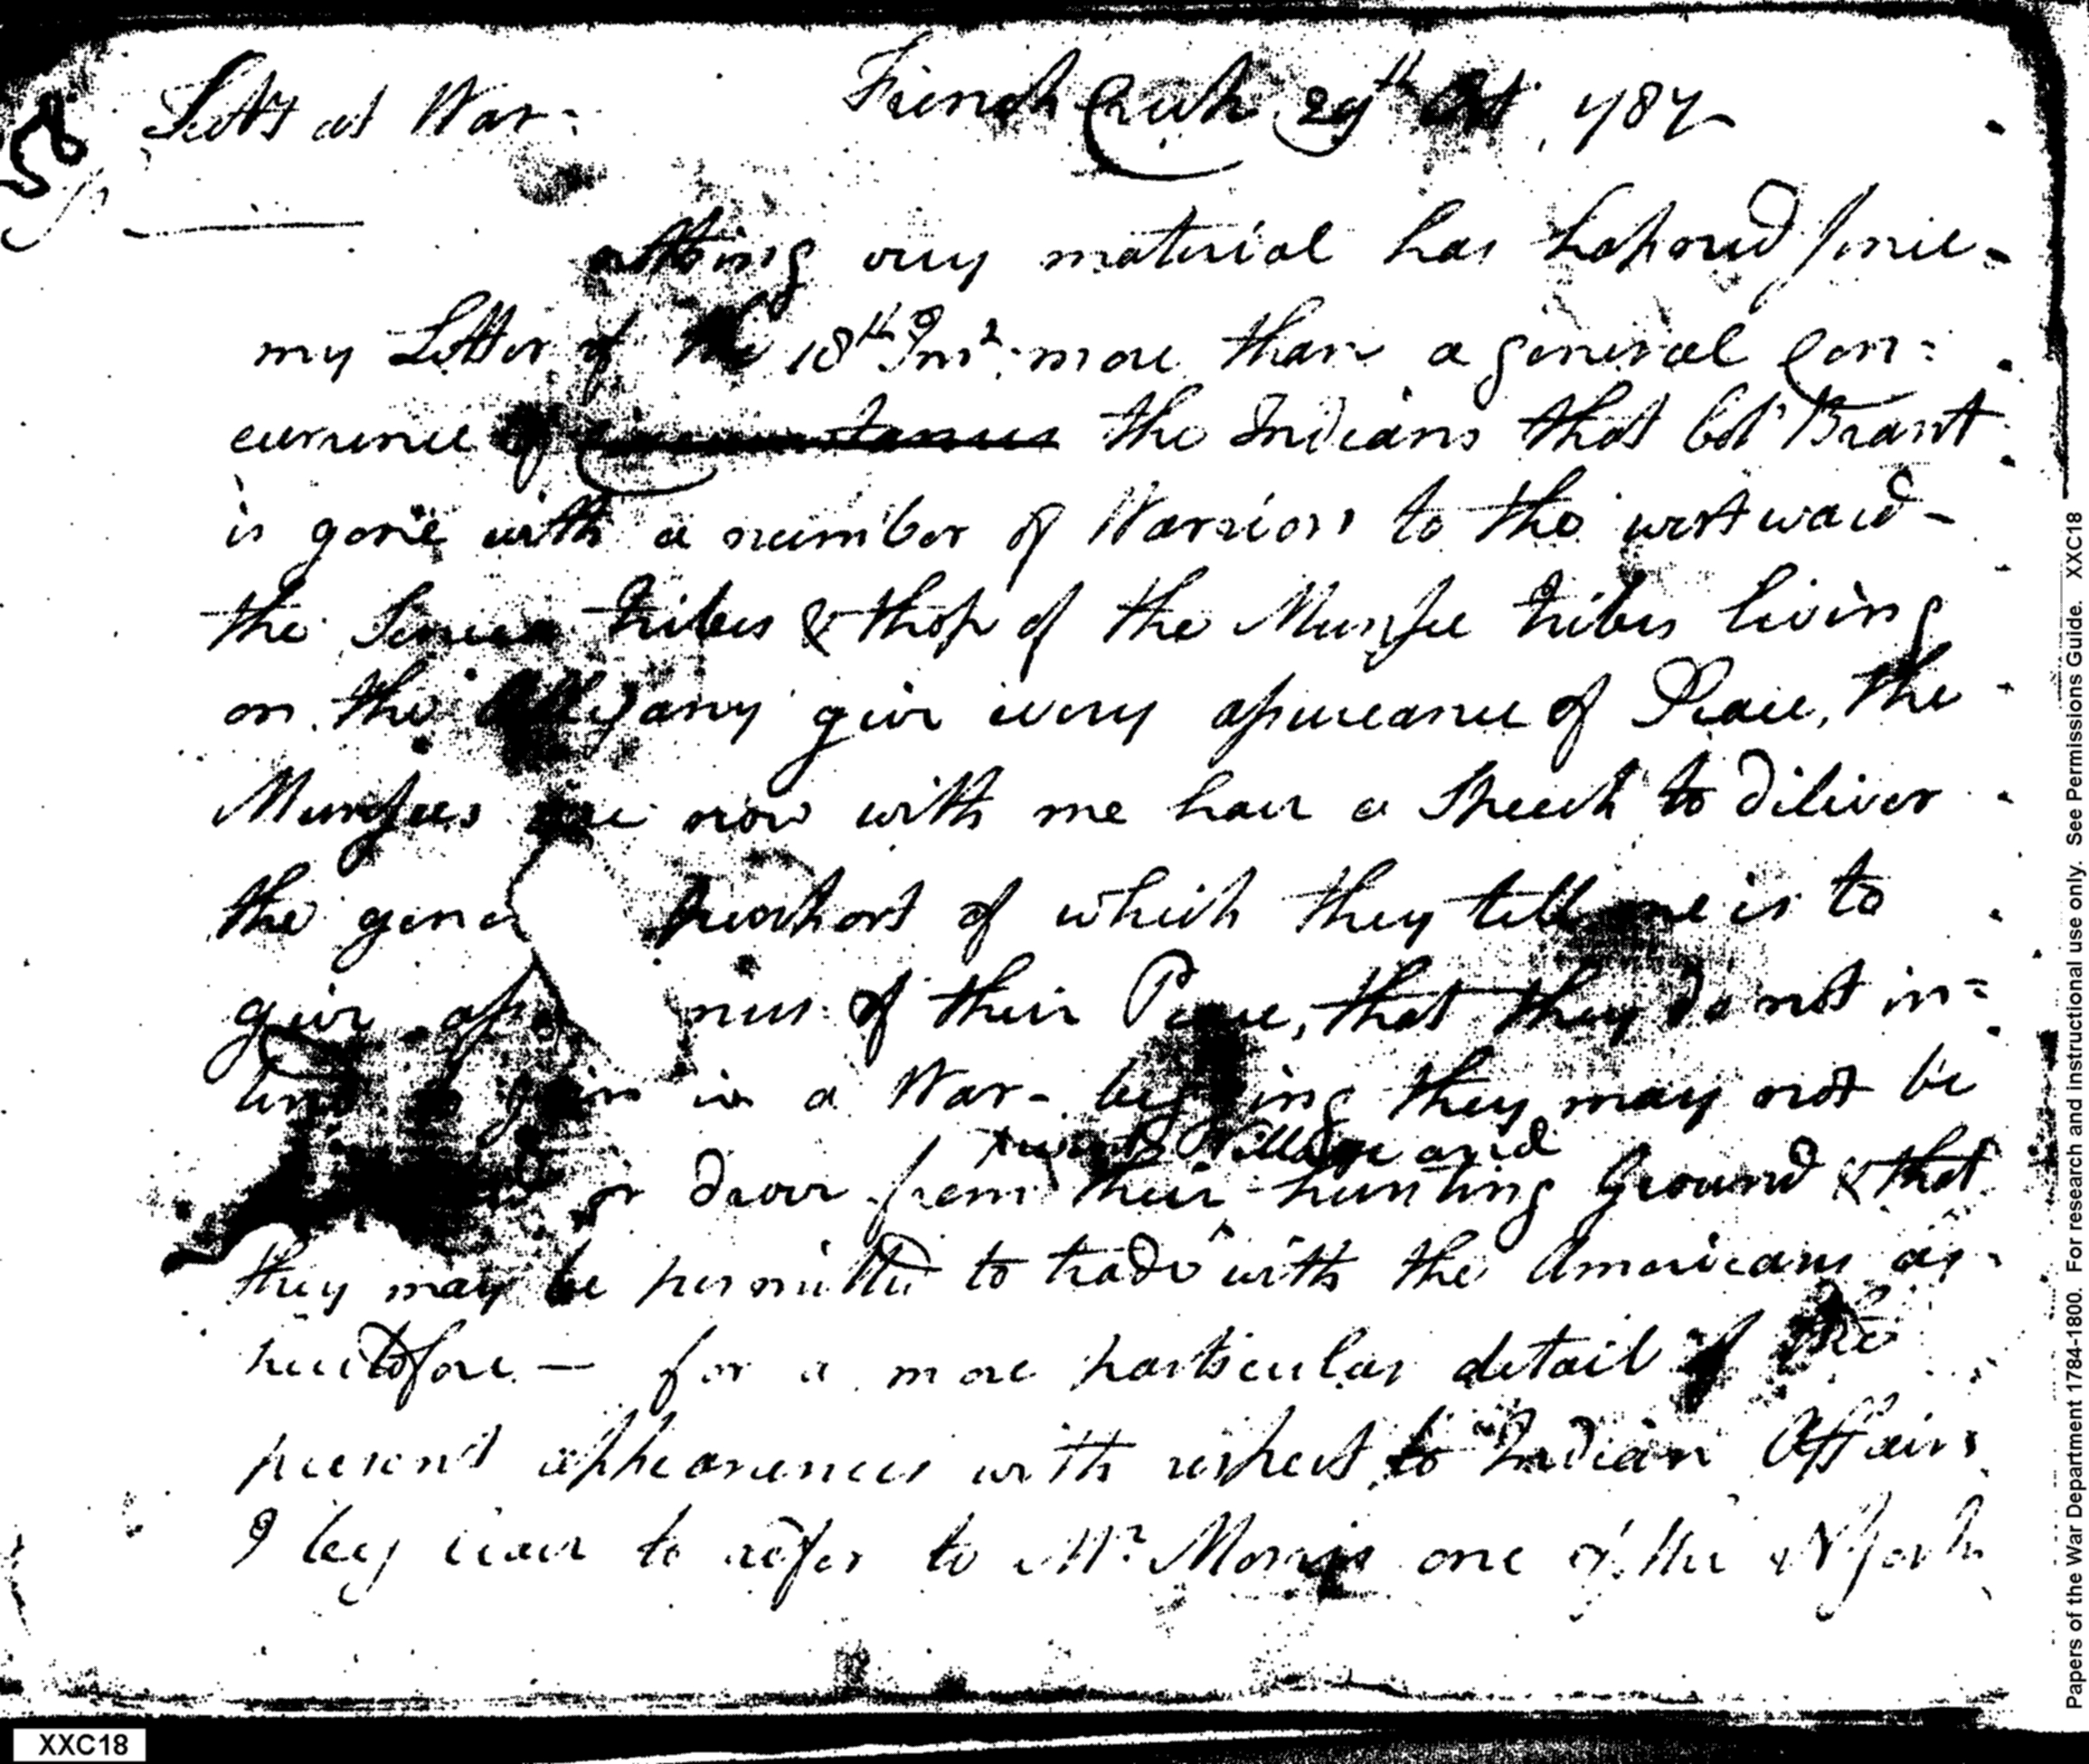 Secty at War. French Creek 29th Oct. 1787
Sir
nothing very material has hapned since
my Letter of the 18th Inst. more than a general con=
currence of circumstances the Indians that Col Brant
is gone with a number of Warriors to the westward-
the Seneca tribes & those of the Munsee tribes living
on the Allegany give every apireance of Peace, the
Munsees are now with me have a Speech to diliver
the gene purport of which they tell me is to
give of their Peace, that they do not in=
tend to join in a War- begging they may not be
or drove from their hunting Ground & that
Village and
they may be permitted to trade with the Americans as
heretofore — for a more particular detail of the
present appearences with respect to Indian Affairs
I beg leave to refer to Mr. Morris one of the N York
XXC18
Papers of the War Department 1784-1800. For research and instructional use only. See Permissions Guide. XXC18